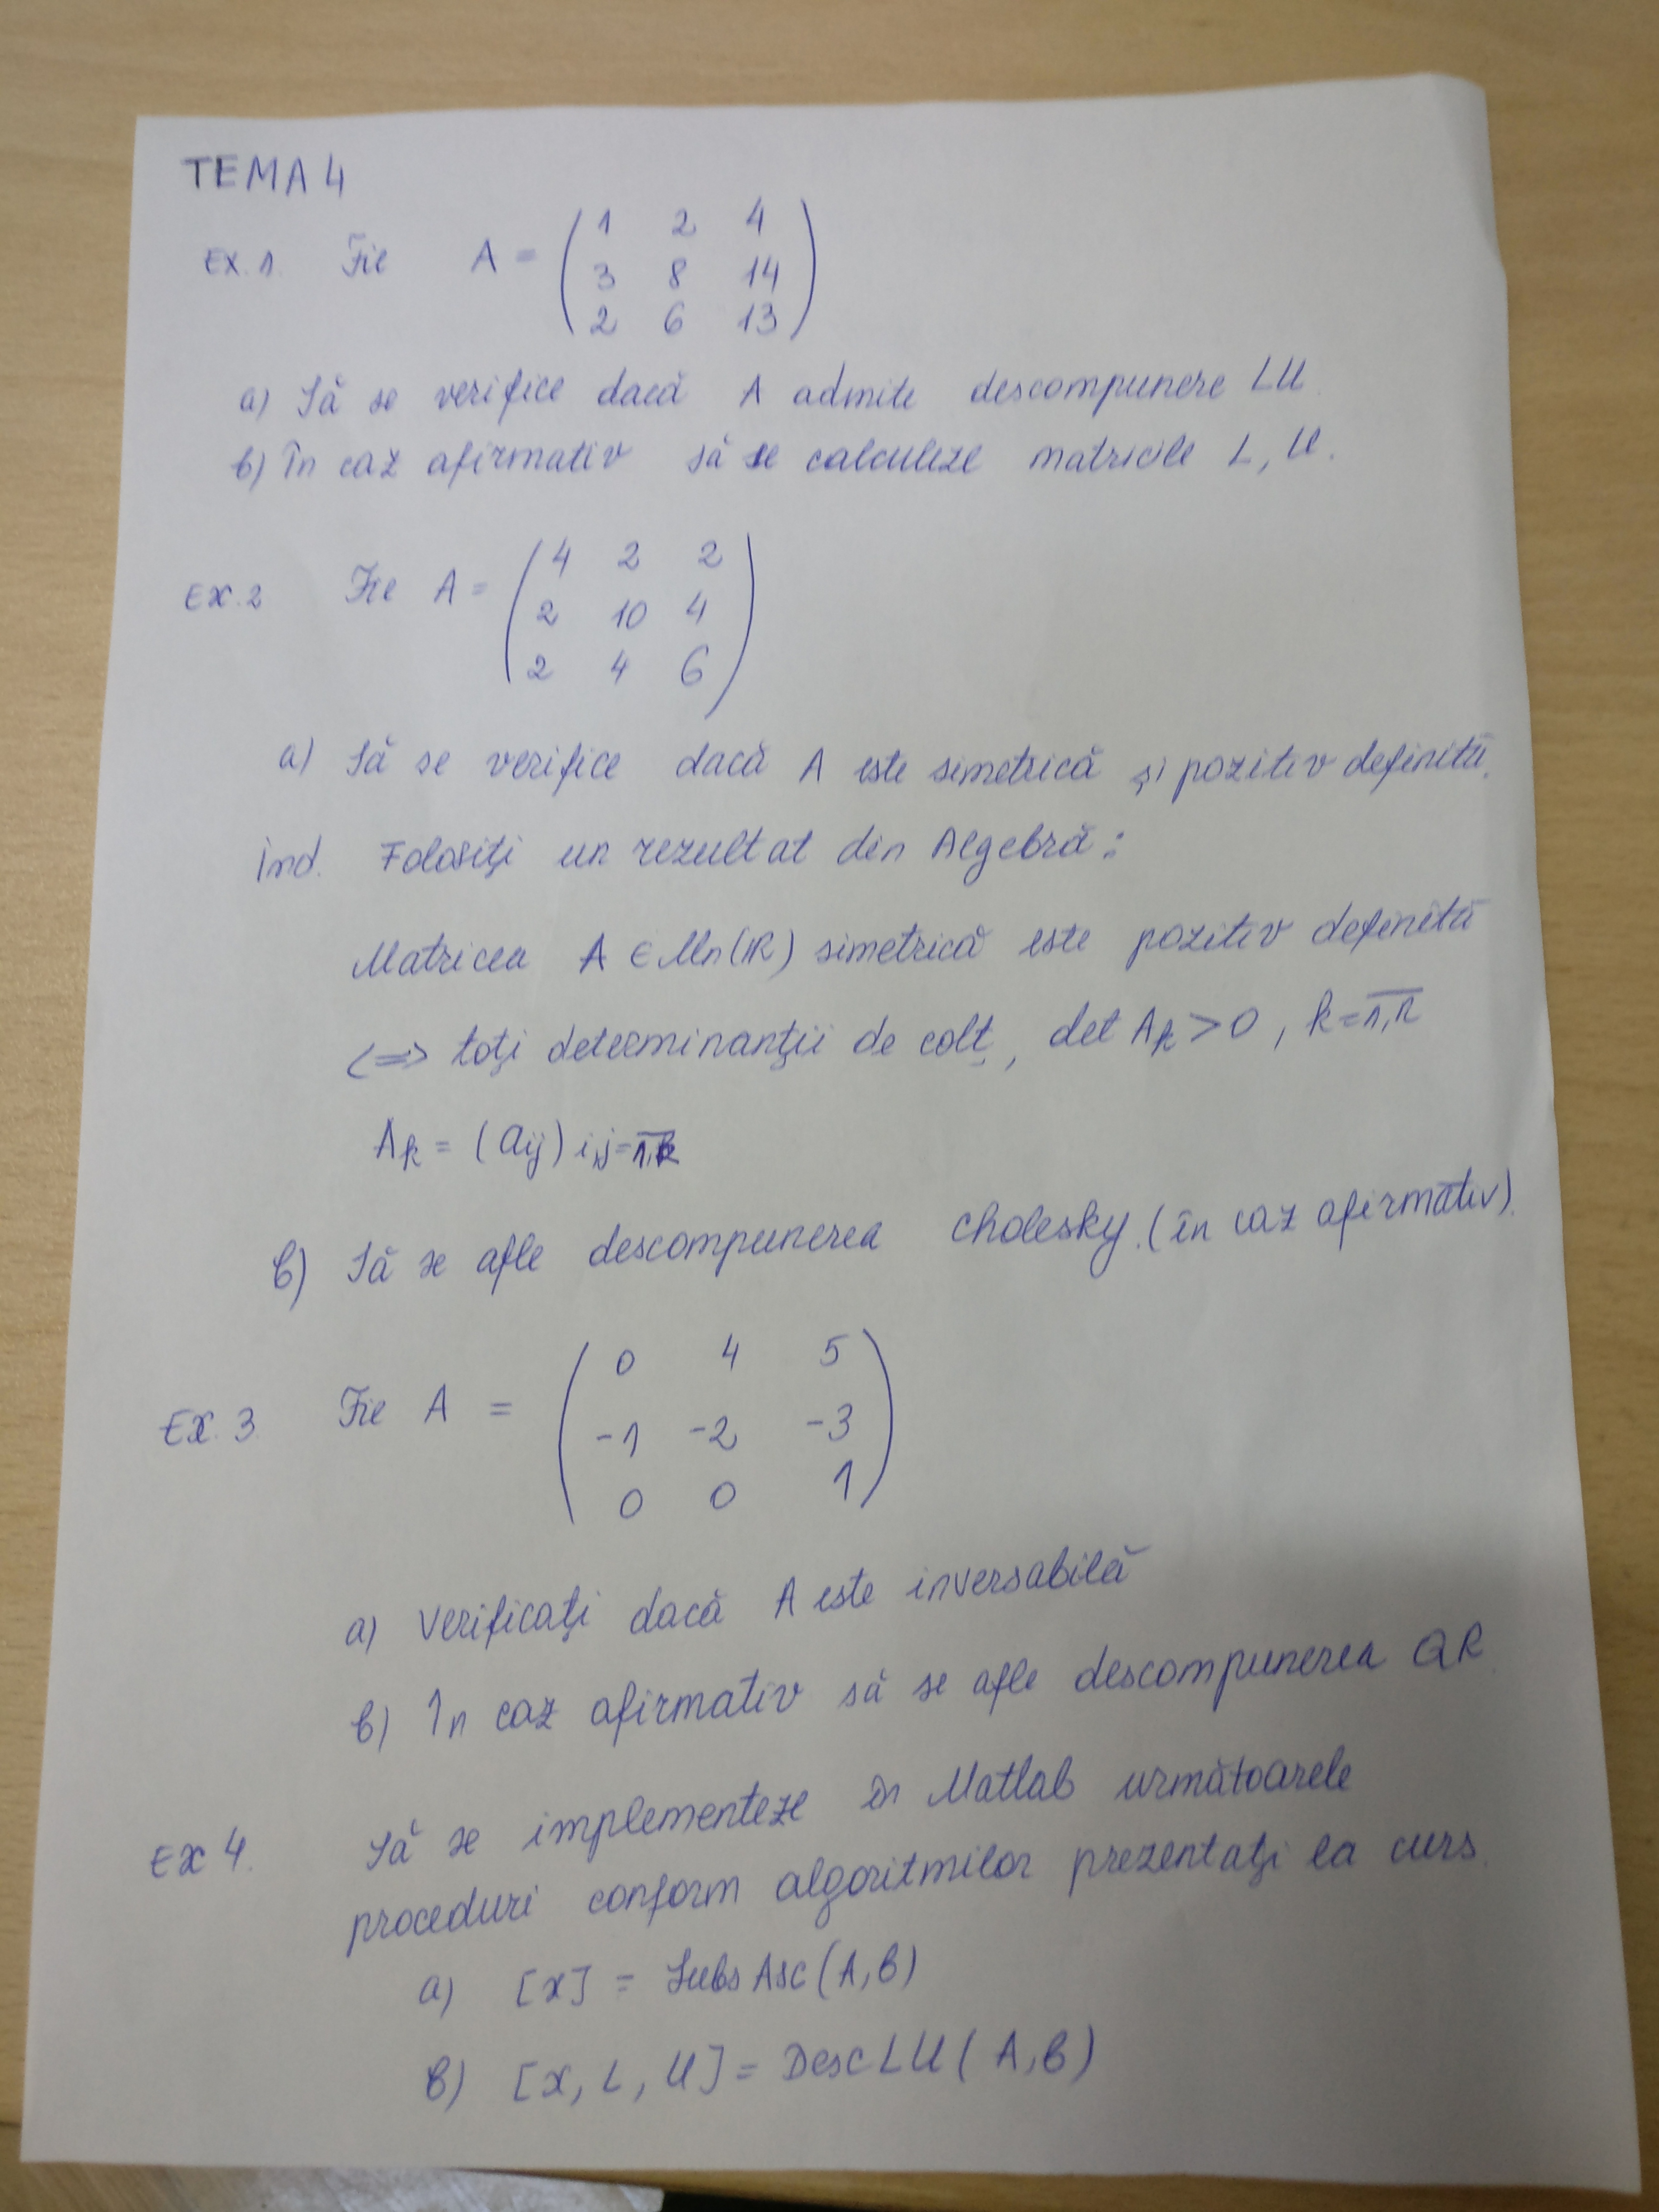 TEMA 4
1 2 4
Ex. 1. Fie A = 3 8 14
2 6 13
a) Să se verifice dacă A admite descompunere LU.
b) În caz afirmativ să se calculeze matricile L, U.
4 2 2
Ex. 2 Fie A = 2 10 4
2 4 6
a) Să se verifice dacă A este simetrică și pozitiv definită.
Ind. Folosiți un rezultat din Algebră:
Matricea A ∈ Mn(R) simetrică este pozitiv definită
<=> toți determinanții de colț, det Ak > 0, k = 1,n
Ak = (aij) i,j = 1,k
b) Să se afle descompunerea Cholesky. (în caz afirmativ).
0 4 5
Ex. 3 Fie A = -1 -2 -3
0 0 1
a) Verificați dacă A este inversabilă
b) În caz afirmativ să se afle descompunerea QR
Ex 4. Să se implementeze în Matlab următoarele
proceduri conform algoritmilor prezentați la curs.
a) [x] = SubsAsc(A,b)
b) [x, L, U] = DescLU(A,b)